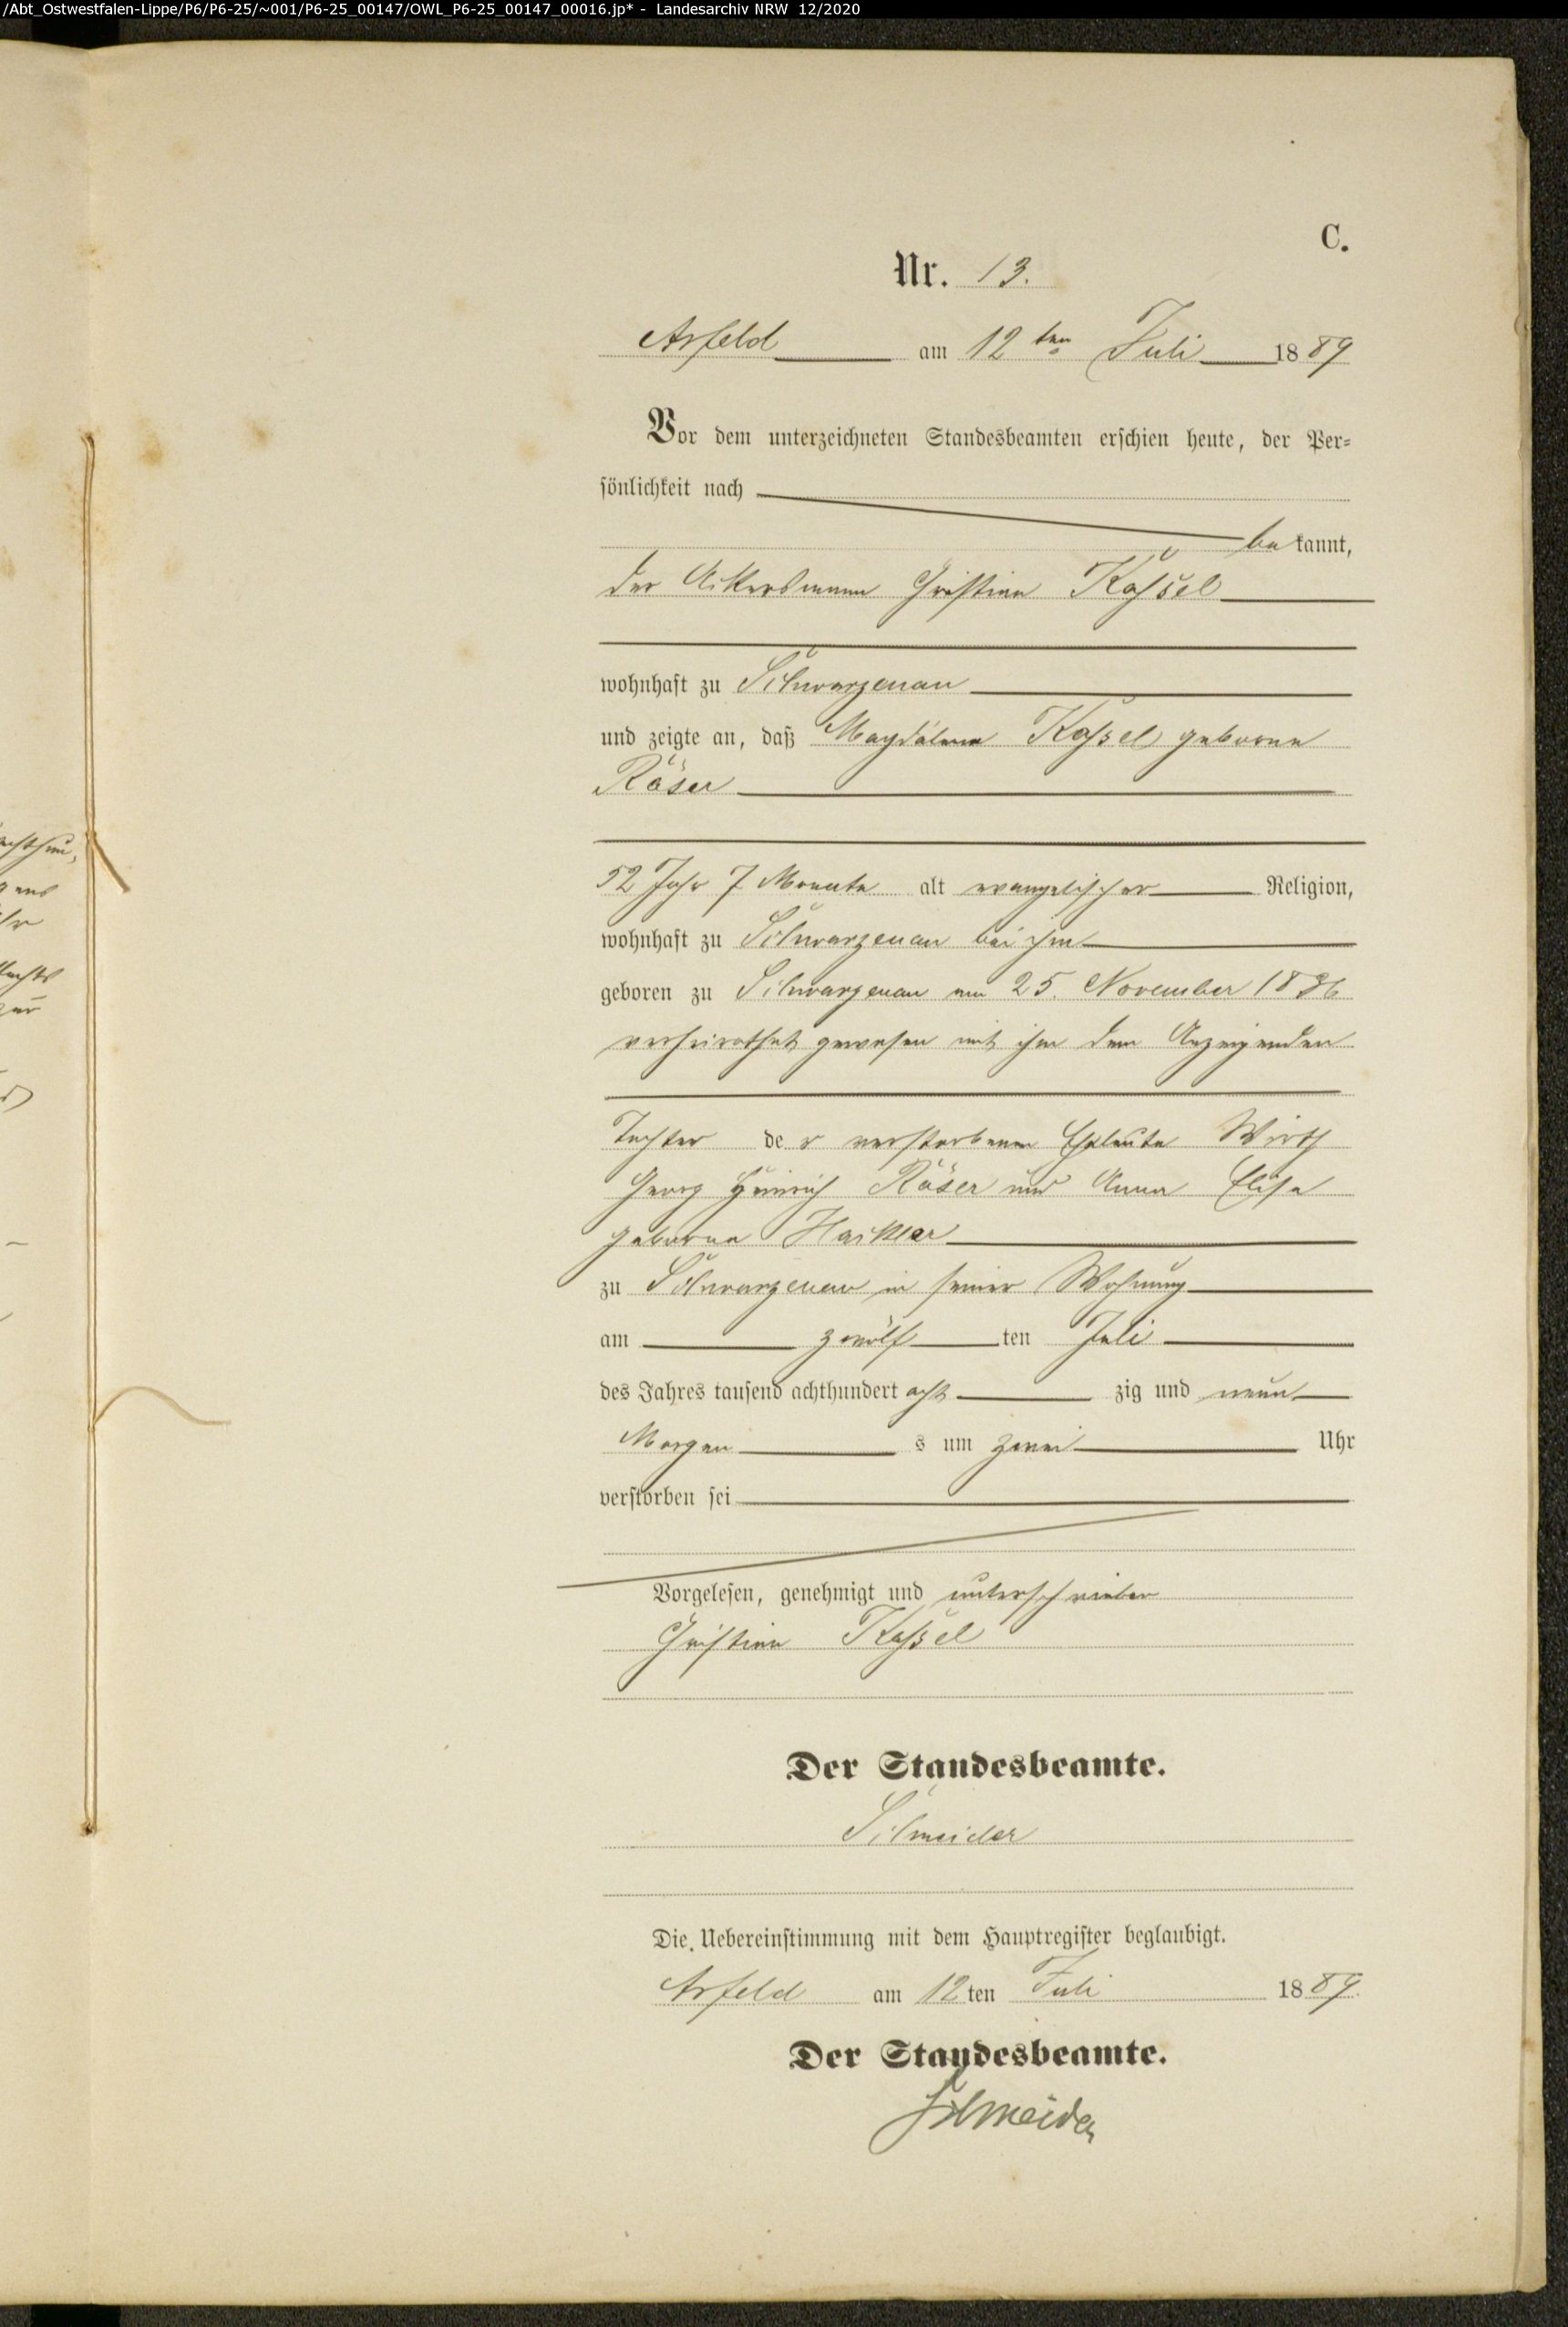 /Abt_Ostwestfalen-Lippe/P6/P6-25/~001/P6-25_00147/OWL_P6-25_00147_00016.jp* - Landesarchiv NRW 12/2020
C.
Nr. 13.
Arfeld am 12ten Juli 1889
Vor dem unterzeichneten Standesbeamten erschien heute, der Per-
sönlichkeit nach
bekannt,
der Ackersmann Christian Kaßel
wohnhaft zu Schwarzenau
und zeigte an, daß Magdalena Kaßel geborne
Röser
52 Jahr 7 Monate alt evangelischer Religion,
wohnhaft zu Schwarzenau bei ihm
geboren zu Schwarzenau am 25. November 1836
verheirathet gewesen mit ihm dem Anzeigenden
Tochter der verstorbenen Eheleute Wirth
Georg Heinrich Röser und Anna Elisa
geborne
zu Schwarzenau in seiner Wohnung
am zwölften Juli
des Jahres tausend achthundert achtzig und neun
Morgens um zwei Uhr
verstorben sei
Vorgelesen, genehmigt und unterschrieben
Christian Kaßel
Der Standesbeamte.
Schneider
Die Uebereinstimmung mit dem Hauptregister beglaubigt.
Arfeld am 12ten Juli 1889.
Der Standesbeamte.
Schneider